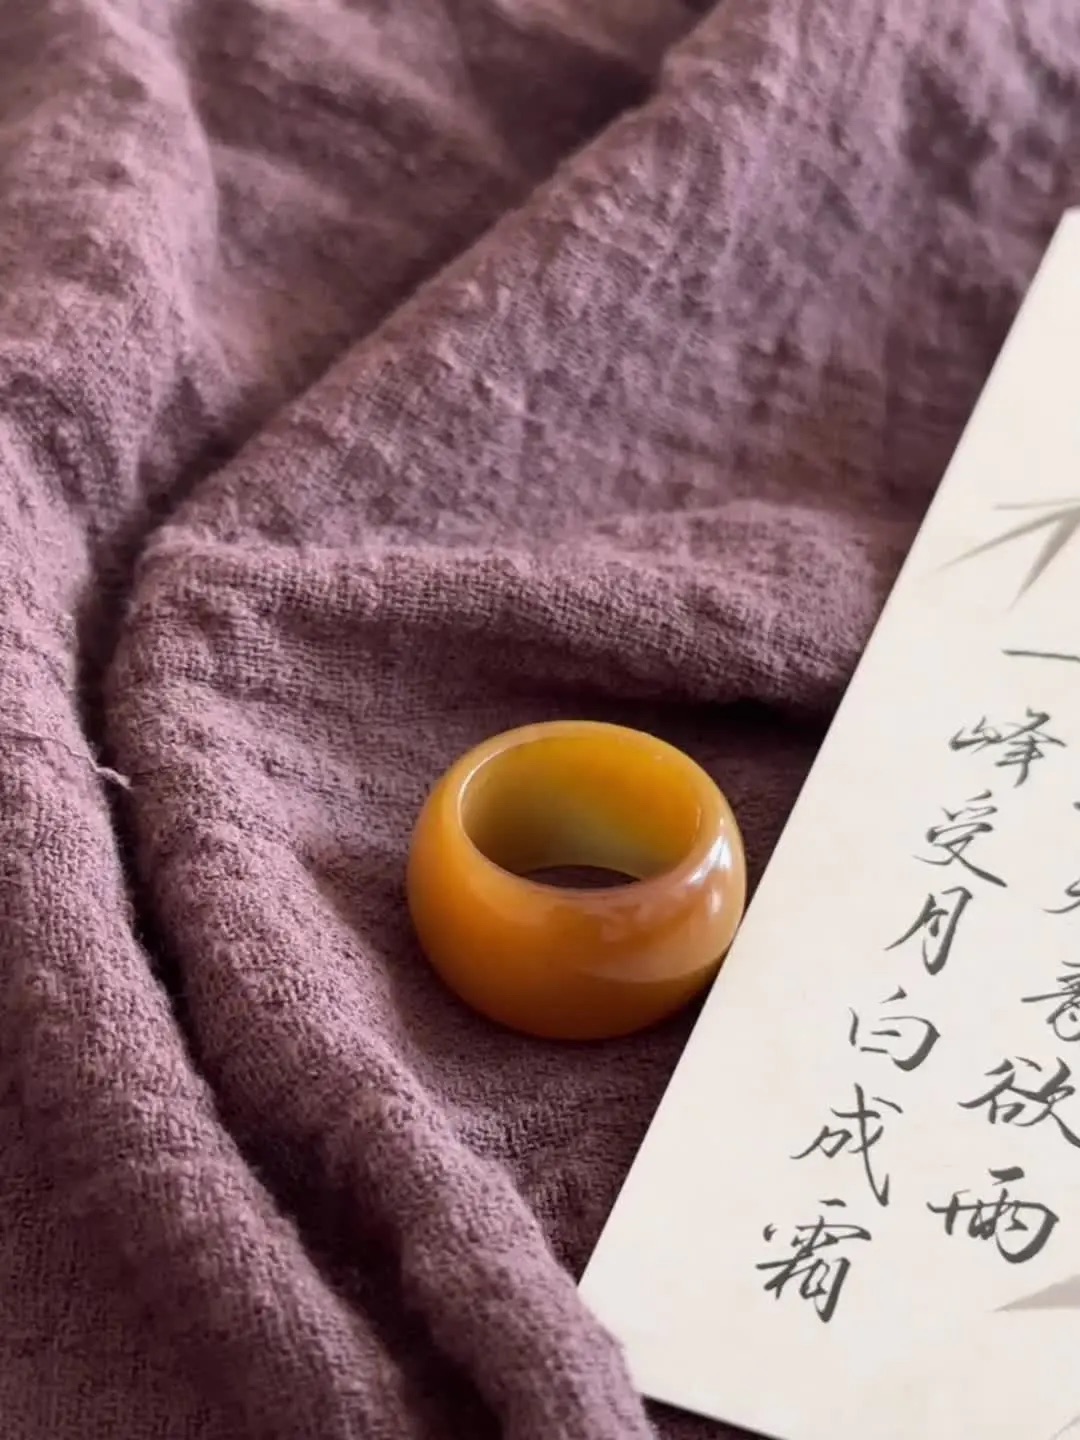 青欲雨
一峰受月白成霜